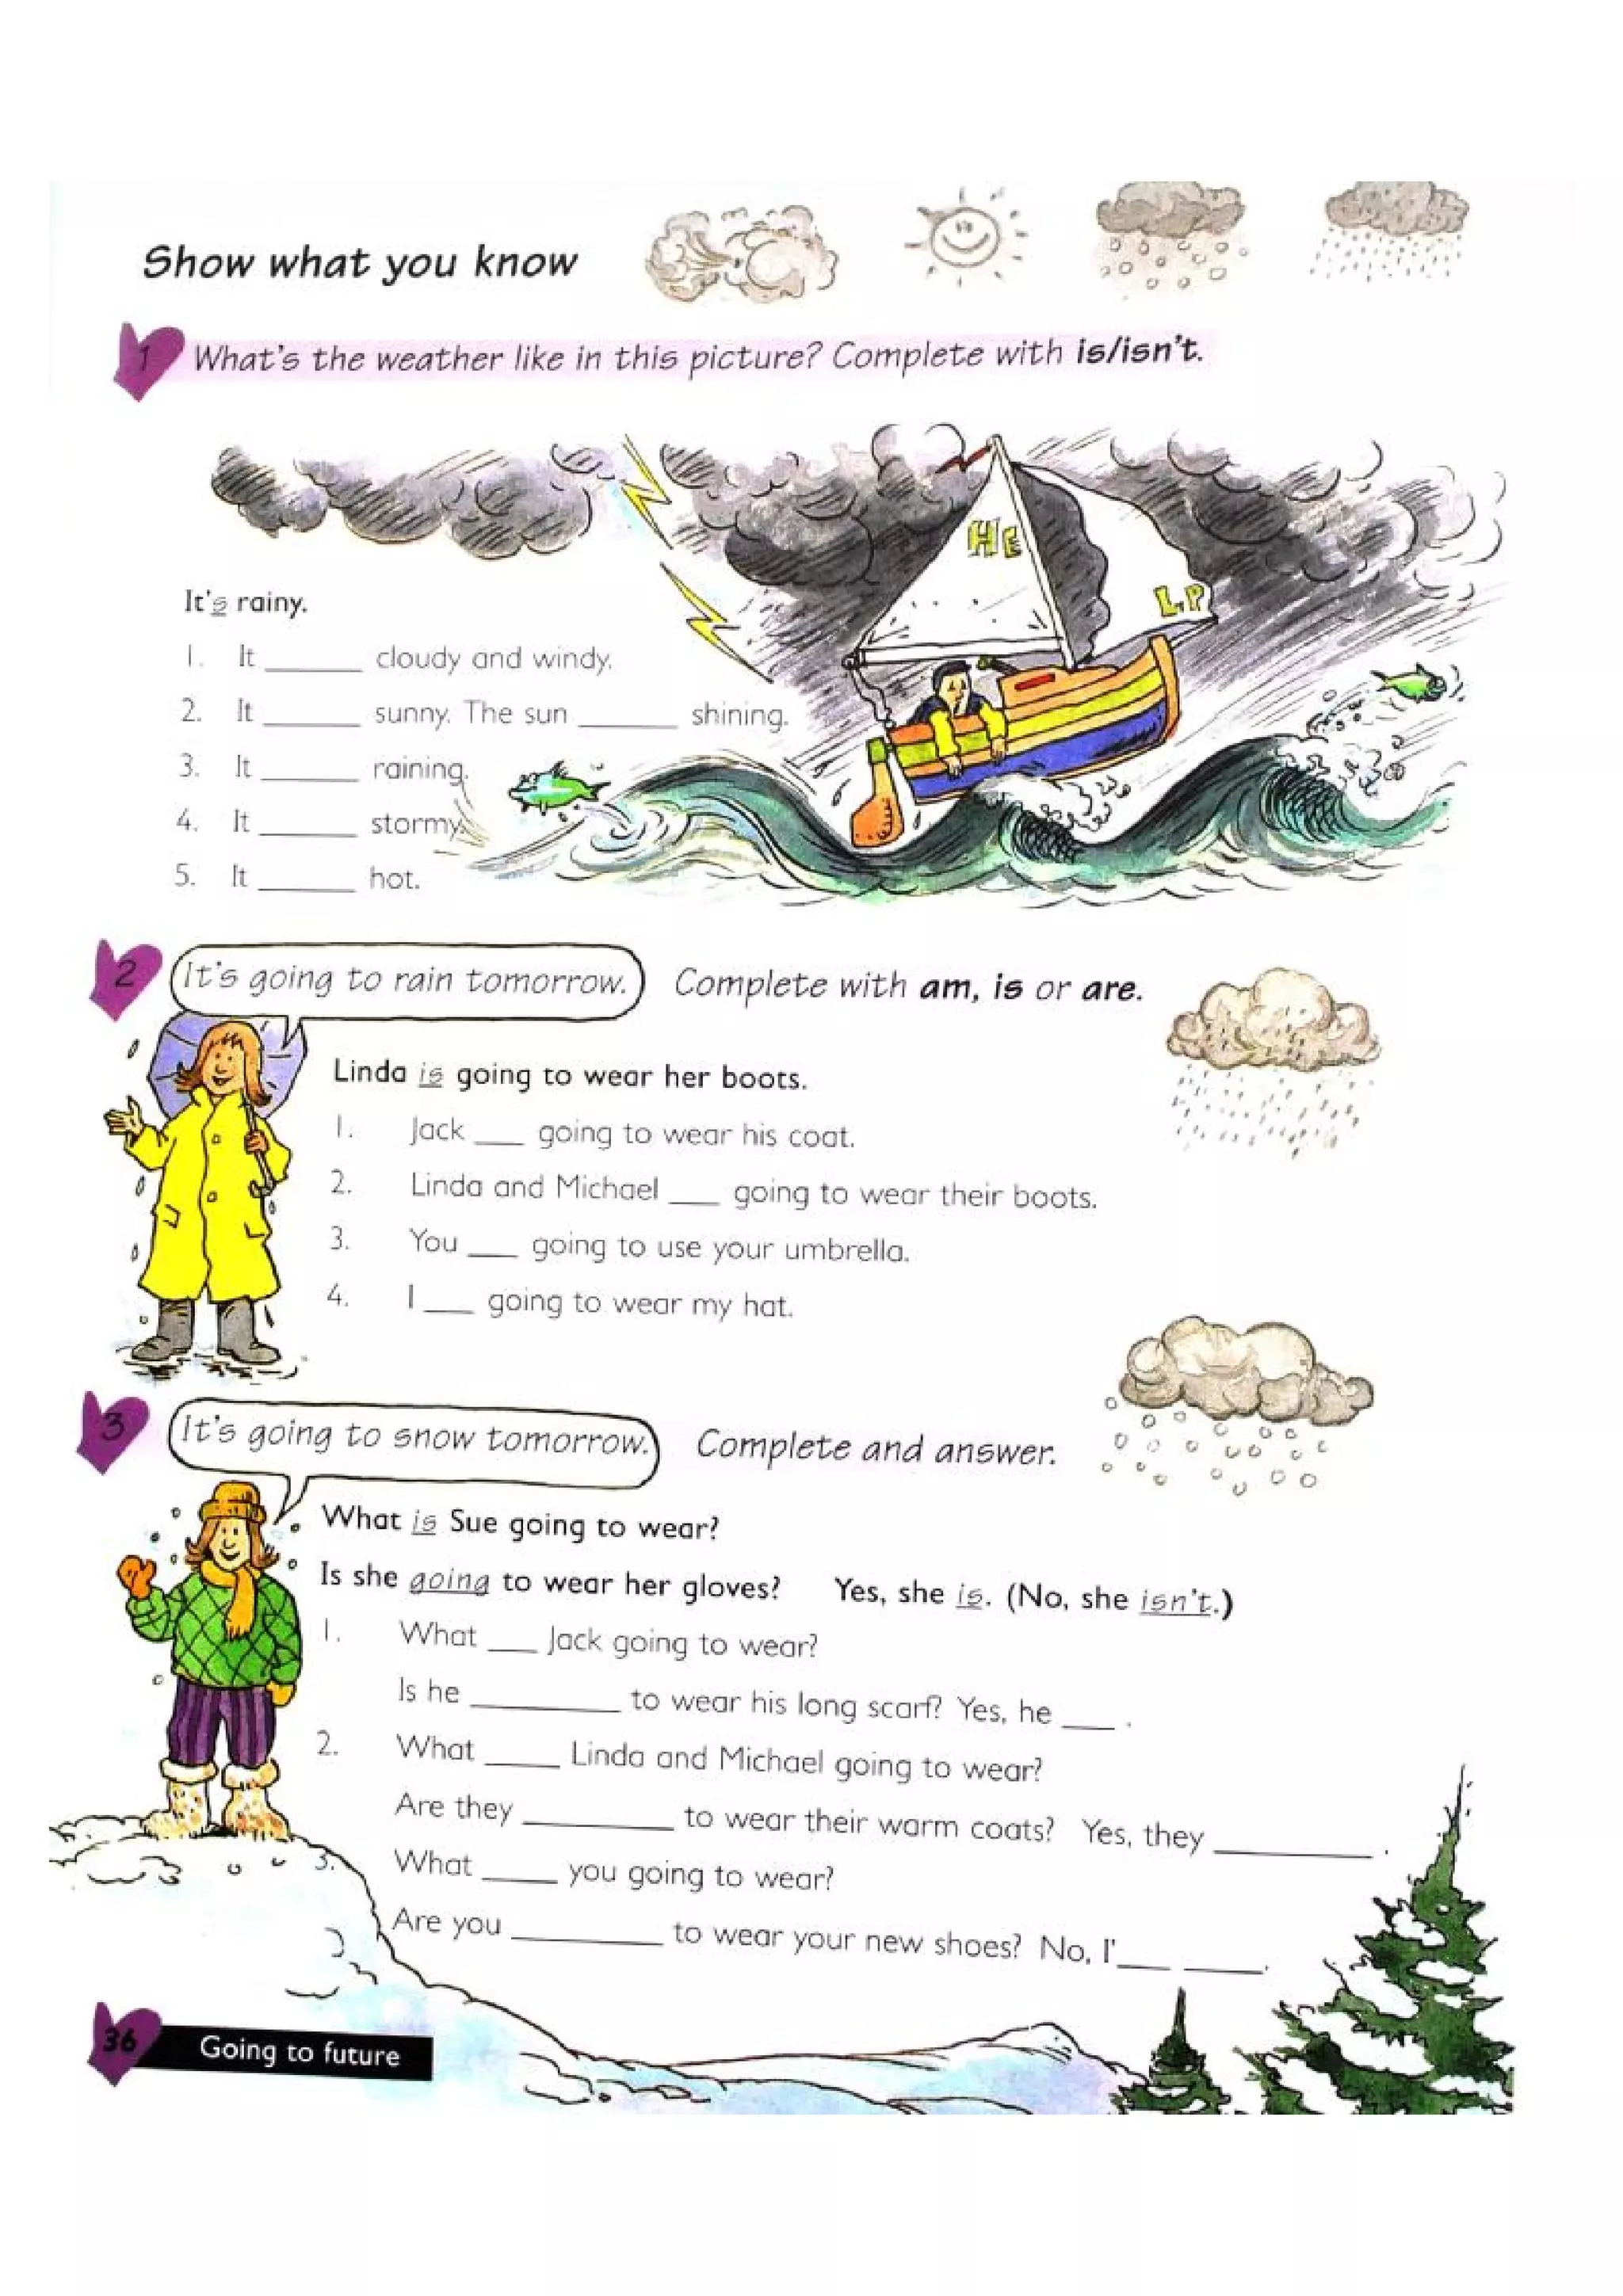 Show what you know
1 What's the weather like in this picture? Complete with is/isn't.
HE
L.P
It's rainy.
1. It ______ cloudy and windy.
2. It ______ sunny. The sun ______ shining.
3. It ______ raining.
4. It ______ stormy.
5. It ______ hot.
2 It's going to rain tomorrow. Complete with am, is or are.
Linda is going to wear her boots.
1. Jack ___ going to wear his coat.
2. Linda and Michael ___ going to wear their boots.
3. You ___ going to use your umbrella.
4. I ___ going to wear my hat.
3 It's going to snow tomorrow. Complete and answer.
What is Sue going to wear?
Is she going to wear her gloves? Yes, she is. (No, she isn't.)
1. What ___ Jack going to wear?
Is he _________ to wear his long scarf? Yes, he ___ .
2. What ____ Linda and Michael going to wear?
Are they _________ to wear their warm coats? Yes, they _________ .
3. What ____ you going to wear?
Are you _________ to wear your new shoes? No, I'___ ____.
36 Going to future